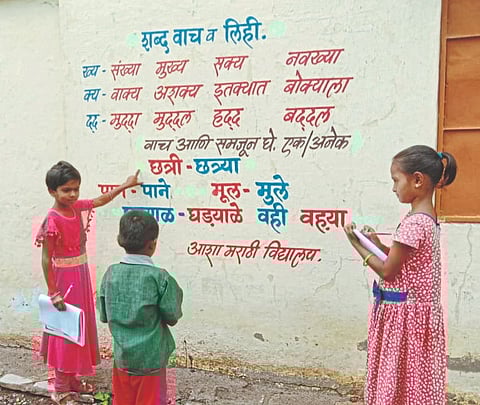 शब्द वाच व लिही.
ख्य - संख्या मुख्य सख्य नवख्या
क्य - वाक्य अशक्य इतक्यात बोक्याला
द्द - मुद्दा मुद्दल हद्द बद्दल
वाच आणि समजून घे. एक/अनेक
छत्री - छत्र्या
पान - पाने मूल - मुले
घड्याळ - घड्याळे वही वह्या
आशा मराठी विद्यालय.